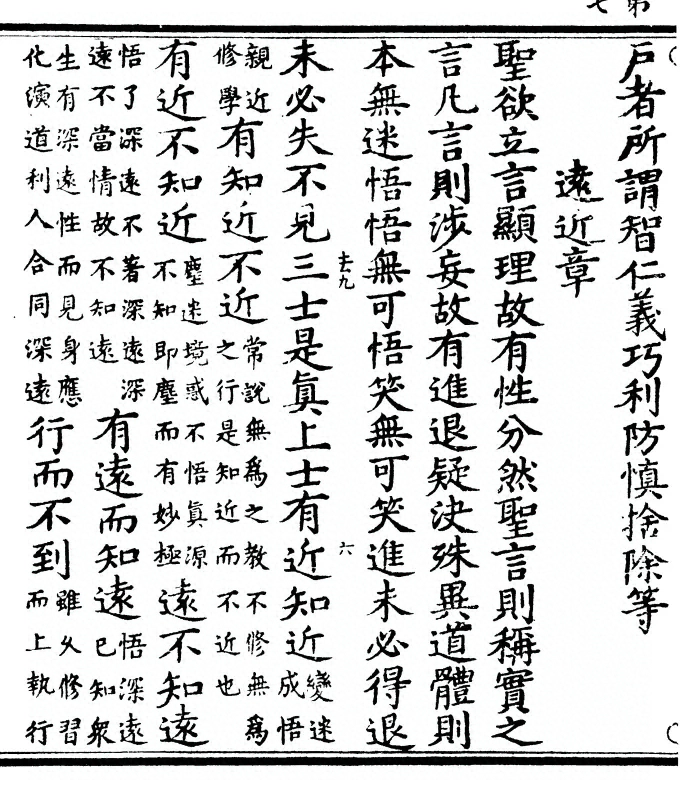 戶者所謂智仁義巧利防慎捨除等
遠近章
聖欲立言顯理故有性分然聖言則稱實之
言凡言則涉妄故有進退疑決殊異道體則
本無迷悟悟無可悟笑無可笑進未必得退
六
未必失不見三士是眞上士有近知近變迷成悟
親近修學有知近不近常說無爲之教不修無爲之行是知近而不近也
有近不知近塵迷境惑不悟眞源不知即塵而有妙極遠不知遠
悟了深遠不著深遠深遠不當情故不知遠有遠而知遠悟深遠已知衆
生有深遠性而見身應化演道利人合同深遠行而不到雖久修習而上執行